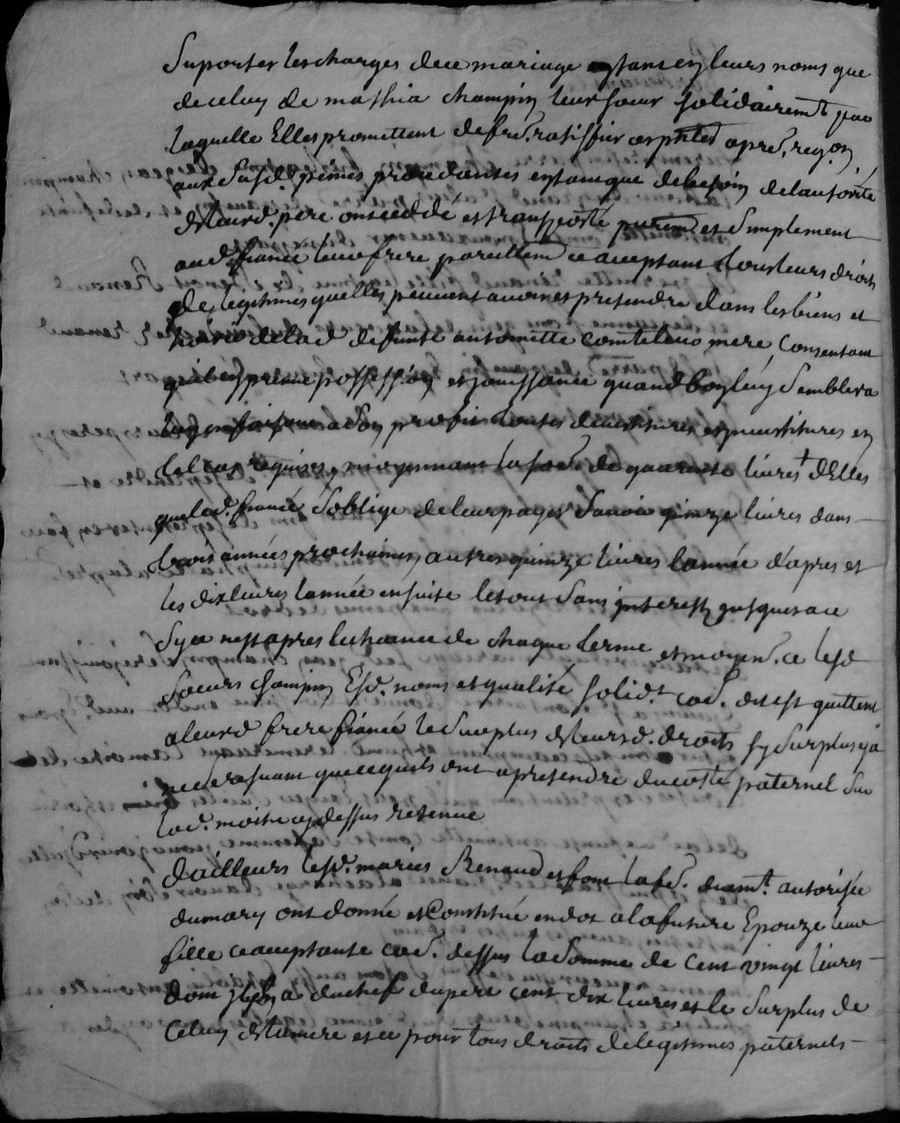 Suporter les charges de ce mariage estant en leurs noms que
de celuy de mathia champin leur soeur solidairemt par
laquelle Elles promettent de fre ratiffier ces pntes
aux susd. peines procedantes entant que de besoin de lautorité
de leurd. pere ont ceddé et transporté purem et simplement
aud. fiancé leur frere pareillem ce acceptant tous leurs droits
de legitimes quelles peuvent avoir et pretendre dans les biens et
de lad defunte antoinette comte leur mere, Consentant
quil en prene possession et jouissance quand bon luy Semblera
a son profit toutes devestitures et investitures en
tel cas requises, moyennant la som. de quarante livres † dElles
que led. fiancé Soblige de leur payer Savoir quinze livres dans
trois années prochaines, autres quinze livres lannée dapres et
les dix livres lannée ensuite le tout Sans interest jusques a ce
Sy ce nest apres lecheance de chaque terme et moyen. ce lesd
soeurs champin Esd. noms et qualité solidt co. d. est quittent
a leurd frere fiancé le surplus de leursd. droits sy surplus y a
ne se reservant que ce quils ont a pretendre du costé paternel sur
lad. moitié cy dessus retenue
Dailleurs lesd. mariés Renaud et font lad fe. autorisée
du mary ont donné et Constitué en dot a la future Epouze leur
fille ce acceptante co. d. dessus la Somme de cent vingt livres
dont il y a du chef du pere cent dix livres et le Surplus de
Celuy de la mere et ce pour tous droits de legitimes paternels